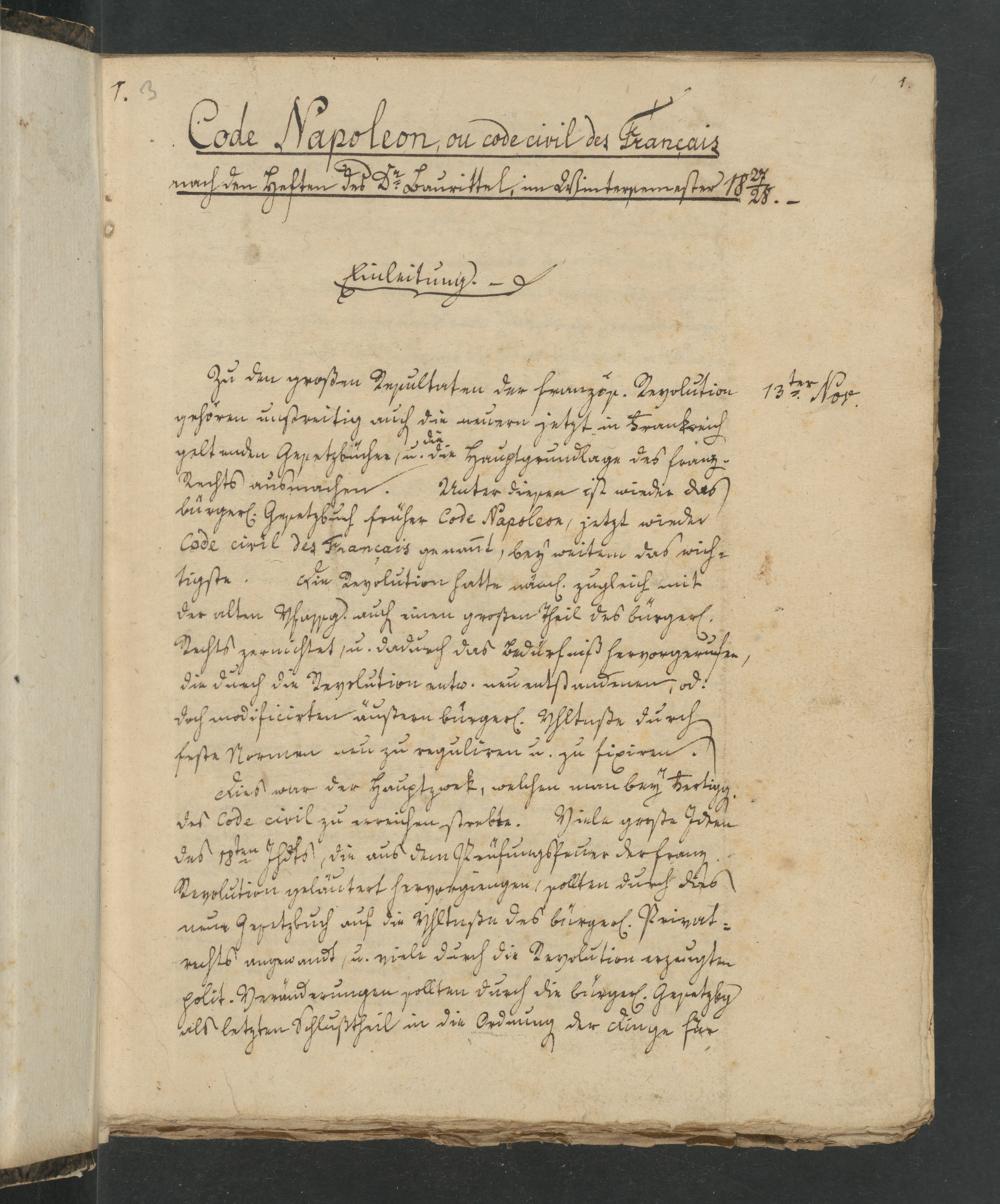 1. 3
1.
Code Napoleon, ou code civil des Français
nach den Heften des Dr. Baurittel, im Wintersemester 18 27/28. –
Einleitung. –
Zu den großen Resultaten der französ. Revolution
13ter Nov.
gehören unstreitig auch die neuern jetzt in Frankreich
geltenden Gesetzbücher, u. die die Hauptgrundlage des franz.
Rechts ausmachen. Unter diesen ist wieder das
bürgerl. Gesetzbuch früher Code Napoleon, jetzt wieder
Code civil des Français genannt, bey weitem das wich-
tigste. Die Revolution hatte näml. zugleich mit
der alten Vfassg. auch einen großen Theil des bürgerl.
Rechts zernichtet, u. dadurch das Bedürfniß hervorgerufen,
die durch die Revolution entw. neu entstandenen, od.
doch modificirten äußern bürgerl. Vhltnße durch
feste Normen neu zu reguliren u. zu fixiren.
Dies war der Hauptzwek, welchen man bey Fertigg.
des Code civil zu erreichen strebte. Viele große Ideen
des 18ten Jhdts, die aus dem Prüfungsfeuer der franz.
Revolution geläutert hervorgiengen, sollten durch dies
neue Gesetzbuch auf die Vhltnße des bürgerl. Privat-
rechts angewandt, u. viele durch die Revolution erzeugten
polit. Veränderungen sollten durch die bürgerl. Gesetzbg
als letzten Schlußtheil in die Ordnung der Dinge für